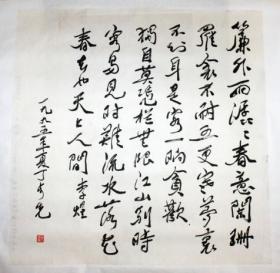 簾外雨潺々春意闌珊
羅衾不耐五更寒夢裏
不知身是客一晌貪歡
獨自莫憑欄無限江山別時
容易見時難流水落花
春去也天上人間 李煜
一九九五年夏丁